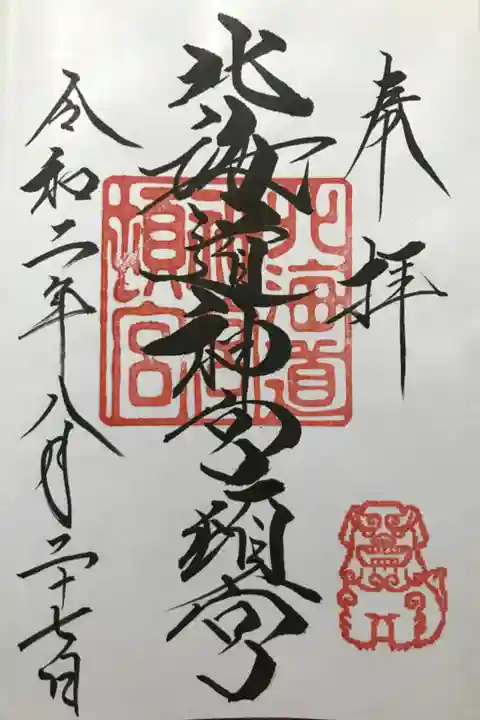 奉拝
北海道神宮頓宮
北海道
神宮
頓宮
令和二年八月二十七日